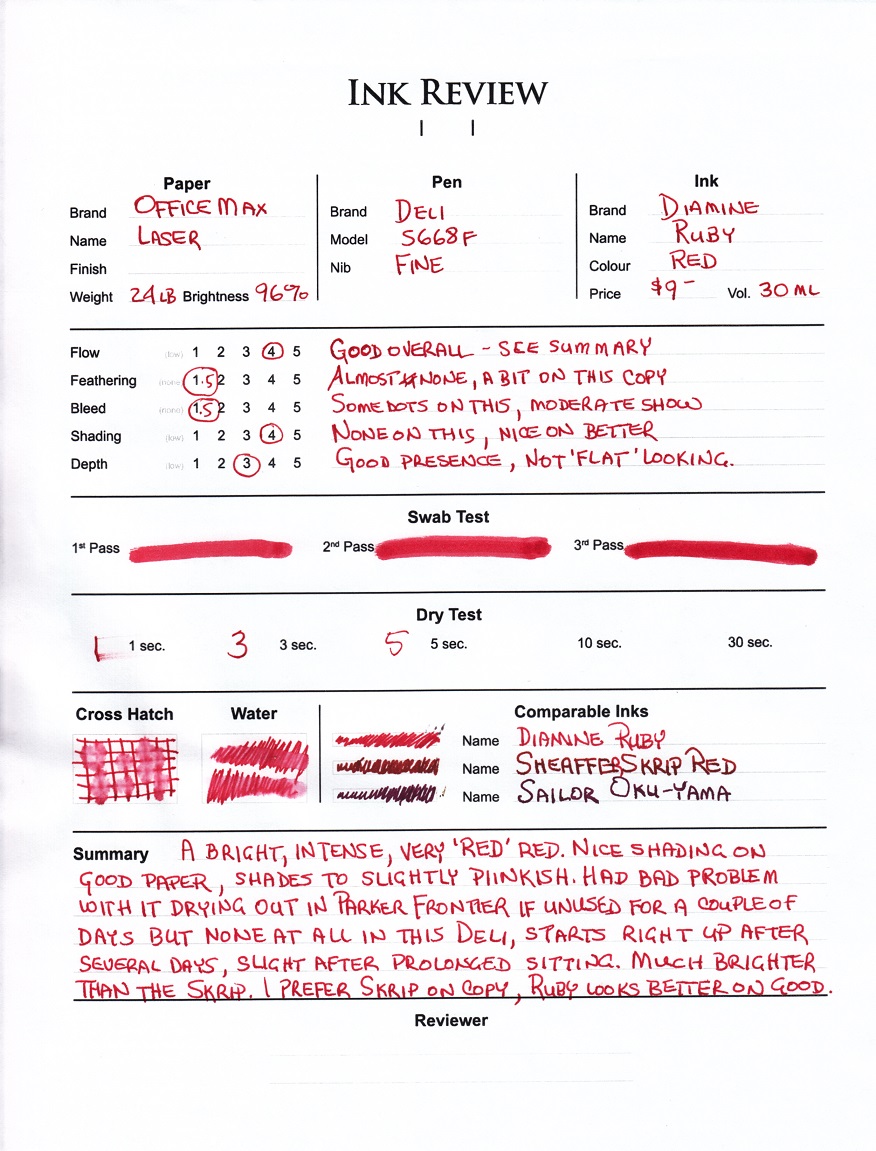 INK REVIEW
Paper
Pen
Ink
Brand OFFICEMAX
Brand DELI
Brand DIAMINE
Name LASER
Model S668F
Name RUBY
Finish
Nib FINE
Colour RED
Weight 24LB Brightness 96%
Price $9- Vol. 30 ML
Flow (low) 1 2 3 4 5 GOOD OVERALL - SEE SUMMARY
Feathering (none) 1.5 2 3 4 5 ALMOST NONE, A BIT ON THIS COPY
Bleed (none) 1.5 2 3 4 5 SOME DOTS ON THIS, MODERATE SHOW
Shading (low) 1 2 3 4 5 NONE ON THIS, NICE ON BETTER
Depth (low) 1 2 3 4 5 GOOD PRESENCE, NOT 'FLAT' LOOKING.
Swab Test
1st Pass 2nd Pass 3rd Pass
Dry Test
1 1 sec. 3 3 sec. 5 5 sec. 10 sec. 30 sec.
Cross Hatch Water Comparable Inks
Name DIAMINE RUBY
Name SHEAFFER SKRIP RED
Name SAILOR OKU-YAMA
Summary A BRIGHT, INTENSE, VERY 'RED' RED. NICE SHADING ON
GOOD PAPER, SHADES TO SLIGHTLY PIINKISH. HAD BAD PROBLEM
WITH IT DRYING OUT IN PARKER FRONTIER IF UNUSED FOR A COUPLE OF
DAYS BUT NONE AT ALL IN THIS DELI, STARTS RIGHT UP AFTER
SEVERAL DAYS, SLIGHT AFTER PROLONGED SITTING. MUCH BRIGHTER
THAN THE SKRIP. I PREFER SKRIP ON COPY, RUBY LOOKS BETTER ON GOOD.
Reviewer